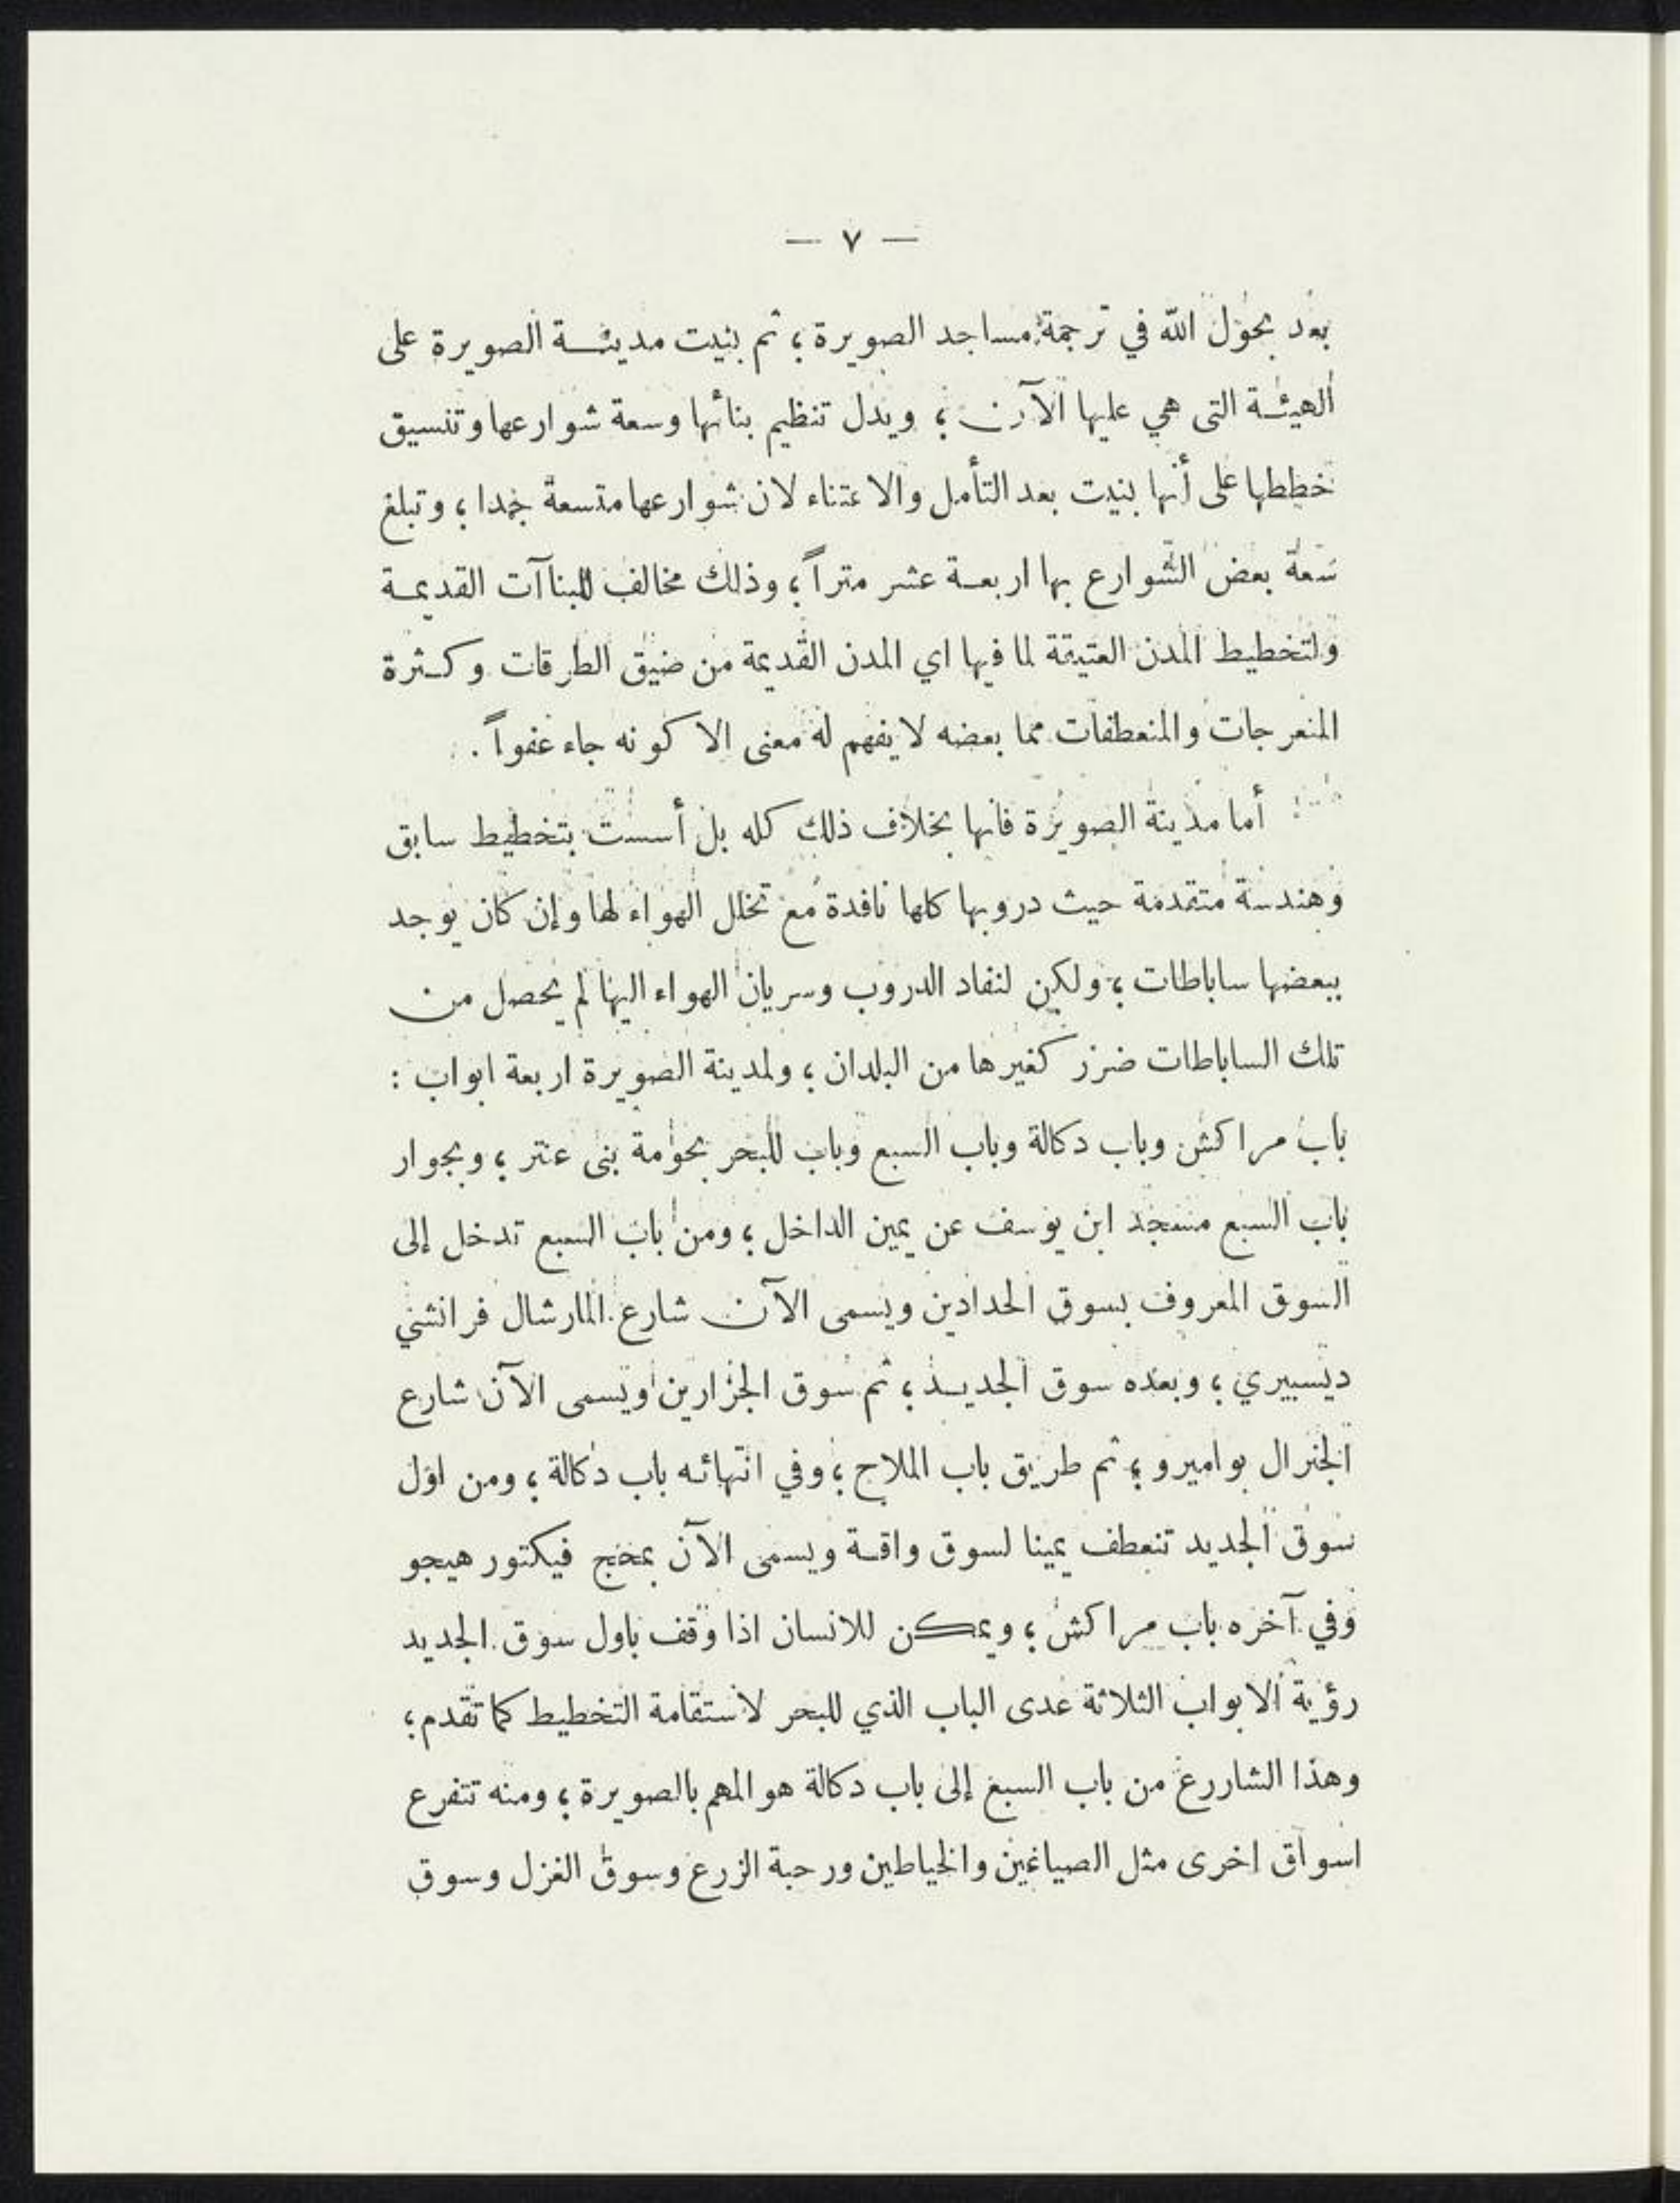 — ٧ —
بعد بحول الله في ترجمة مساجد الصويرة ؛ ثم بنيت مدينـة الصويرة على
الهيئـة التى هي عليها الآن ؛ ويدل تنظيم بنائها وسعة شوارعها وتنسيق
خططها على أنها بنيت بعد التأمل والاعتناء لان شوارعها متسعة جدا ؛ وتبلغ
سعة بعض الشوارع بها اربعـة عشر متراً ؛ وذلك مخالف للبناآت القديمـة
ولتخطيط المدن العتيقة لما فيها اي المدن القديمة من ضيق الطرقات وكـثرة
المنعرجات والمنعطفات مما بعضه لا يفهم له معنى الا كونه جاء عفواً .
أما مدينة الصويرة فانها بخلاف ذلك كله بل أسست بتخطيط سابق
وهندسة متقدمة حيث دروبها كلها نافدة مع تخلل الهواء لها وإن كان يوجد
ببعضها ساباطات ؛ ولكن لنفاد الدروب وسريان الهواء اليها لم يحصل من
تلك الساباطات ضرر كغيرها من البلدان ؛ ولمدينة الصويرة اربعة ابواب :
باب مراكش وباب دكالة وباب السبع وباب للبحر بحومة بنى عنتر ؛ وبجوار
باب السبع مسجد ابن يوسف عن يمين الداخل ؛ ومن باب السبع تدخل إلى
السوق المعروف بسوق الحدادين ويسمى الآن شارع المارشال فرانشي
ديسبيري ؛ وبعده سوق الجديـد ؛ ثم سوق الجزارين ويسمى الآن شارع
الجنرال بواميرو ؛ ثم طريق باب الملاح ؛ وفي انتهائه باب دكالة ؛ ومن اول
سوق الجديد تنعطف يمينا لسوق واقـة ويسمى الآن بمحج فيكتور هيجو
وفي آخره باب مراكش ؛ ويمكن للانسان اذا وقف باول سوق الجديد
رؤية الابواب الثلاثة عدى الباب الذي للبحر لاستقامة التخطيط كما تقدم ؛
وهذا الشاررع من باب السبع إلى باب دكالة هو المهم بالصويرة ؛ ومنه تتفرع
اسواق اخرى مثل الصياغين والخياطين ورحبة الزرع وسوق الغزل وسوق